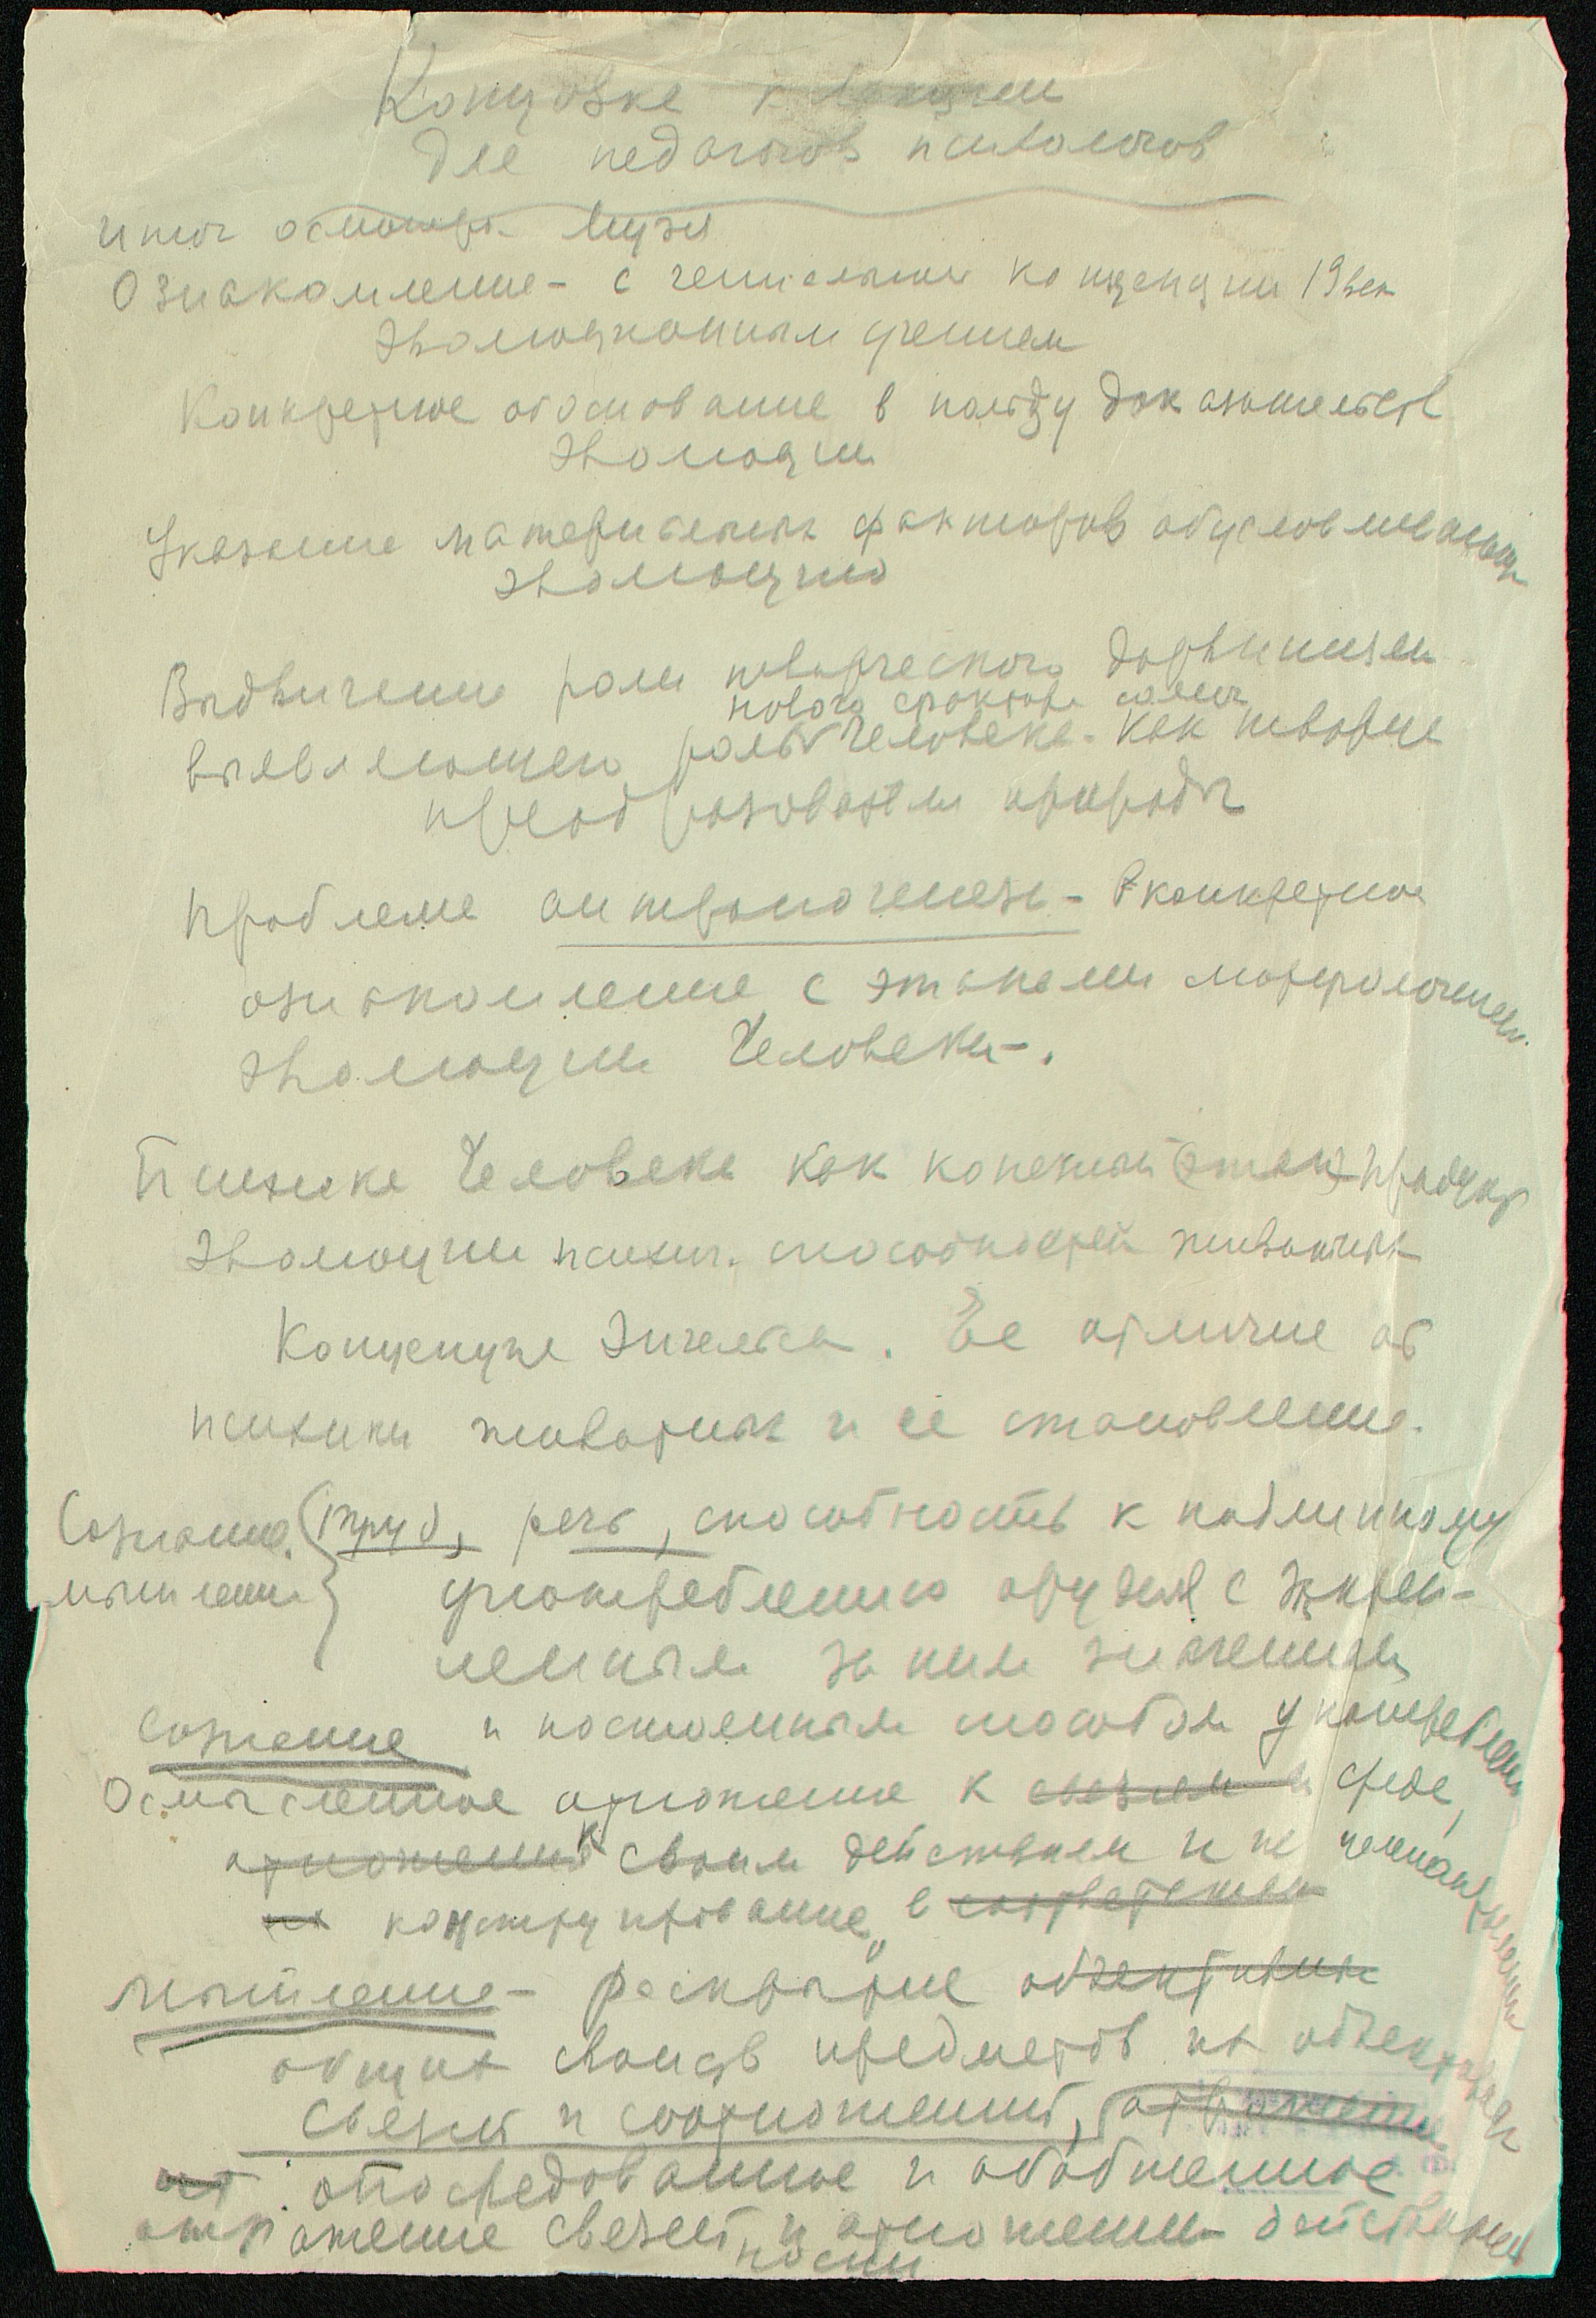 Концовка к лекции
для педагогов психологов
Итог осмотра Музея
Ознакомление – с концепции 19 век
эволюционным учением
Конкретное обоснование в пользу доказательств
эволюции
Указание материальных факторов обусловливающ
эволюцию
Выдвижение роли творческого дарвинизма
нового
выявляющего роль человека как творца
преобразователя природы
Проблема антропогенеза – конкретное
ознакомление с этапами морфологической
эволюции Человека.
Психика Человека как конечный (этап) продукт
эволюции психич. способностей животных
Концепция Энгельса. Ее отличие от
психики животных и ее становление.
Сознание (труд, речь, способность к подлинному
мышление употреблению орудия с закреп-
ленным за ним значением
Сознание и постоянным способом употреблен
Осмысленное отношение к связям и среде,
отношения к своим действиям и
их конструирование в соответствии
мышление – раскрытие объективных
общих свойств предметов их объективных
связей и соотношений, отражение
их опосредованное и обобщенное
отражение связей и отношений действитель
ности